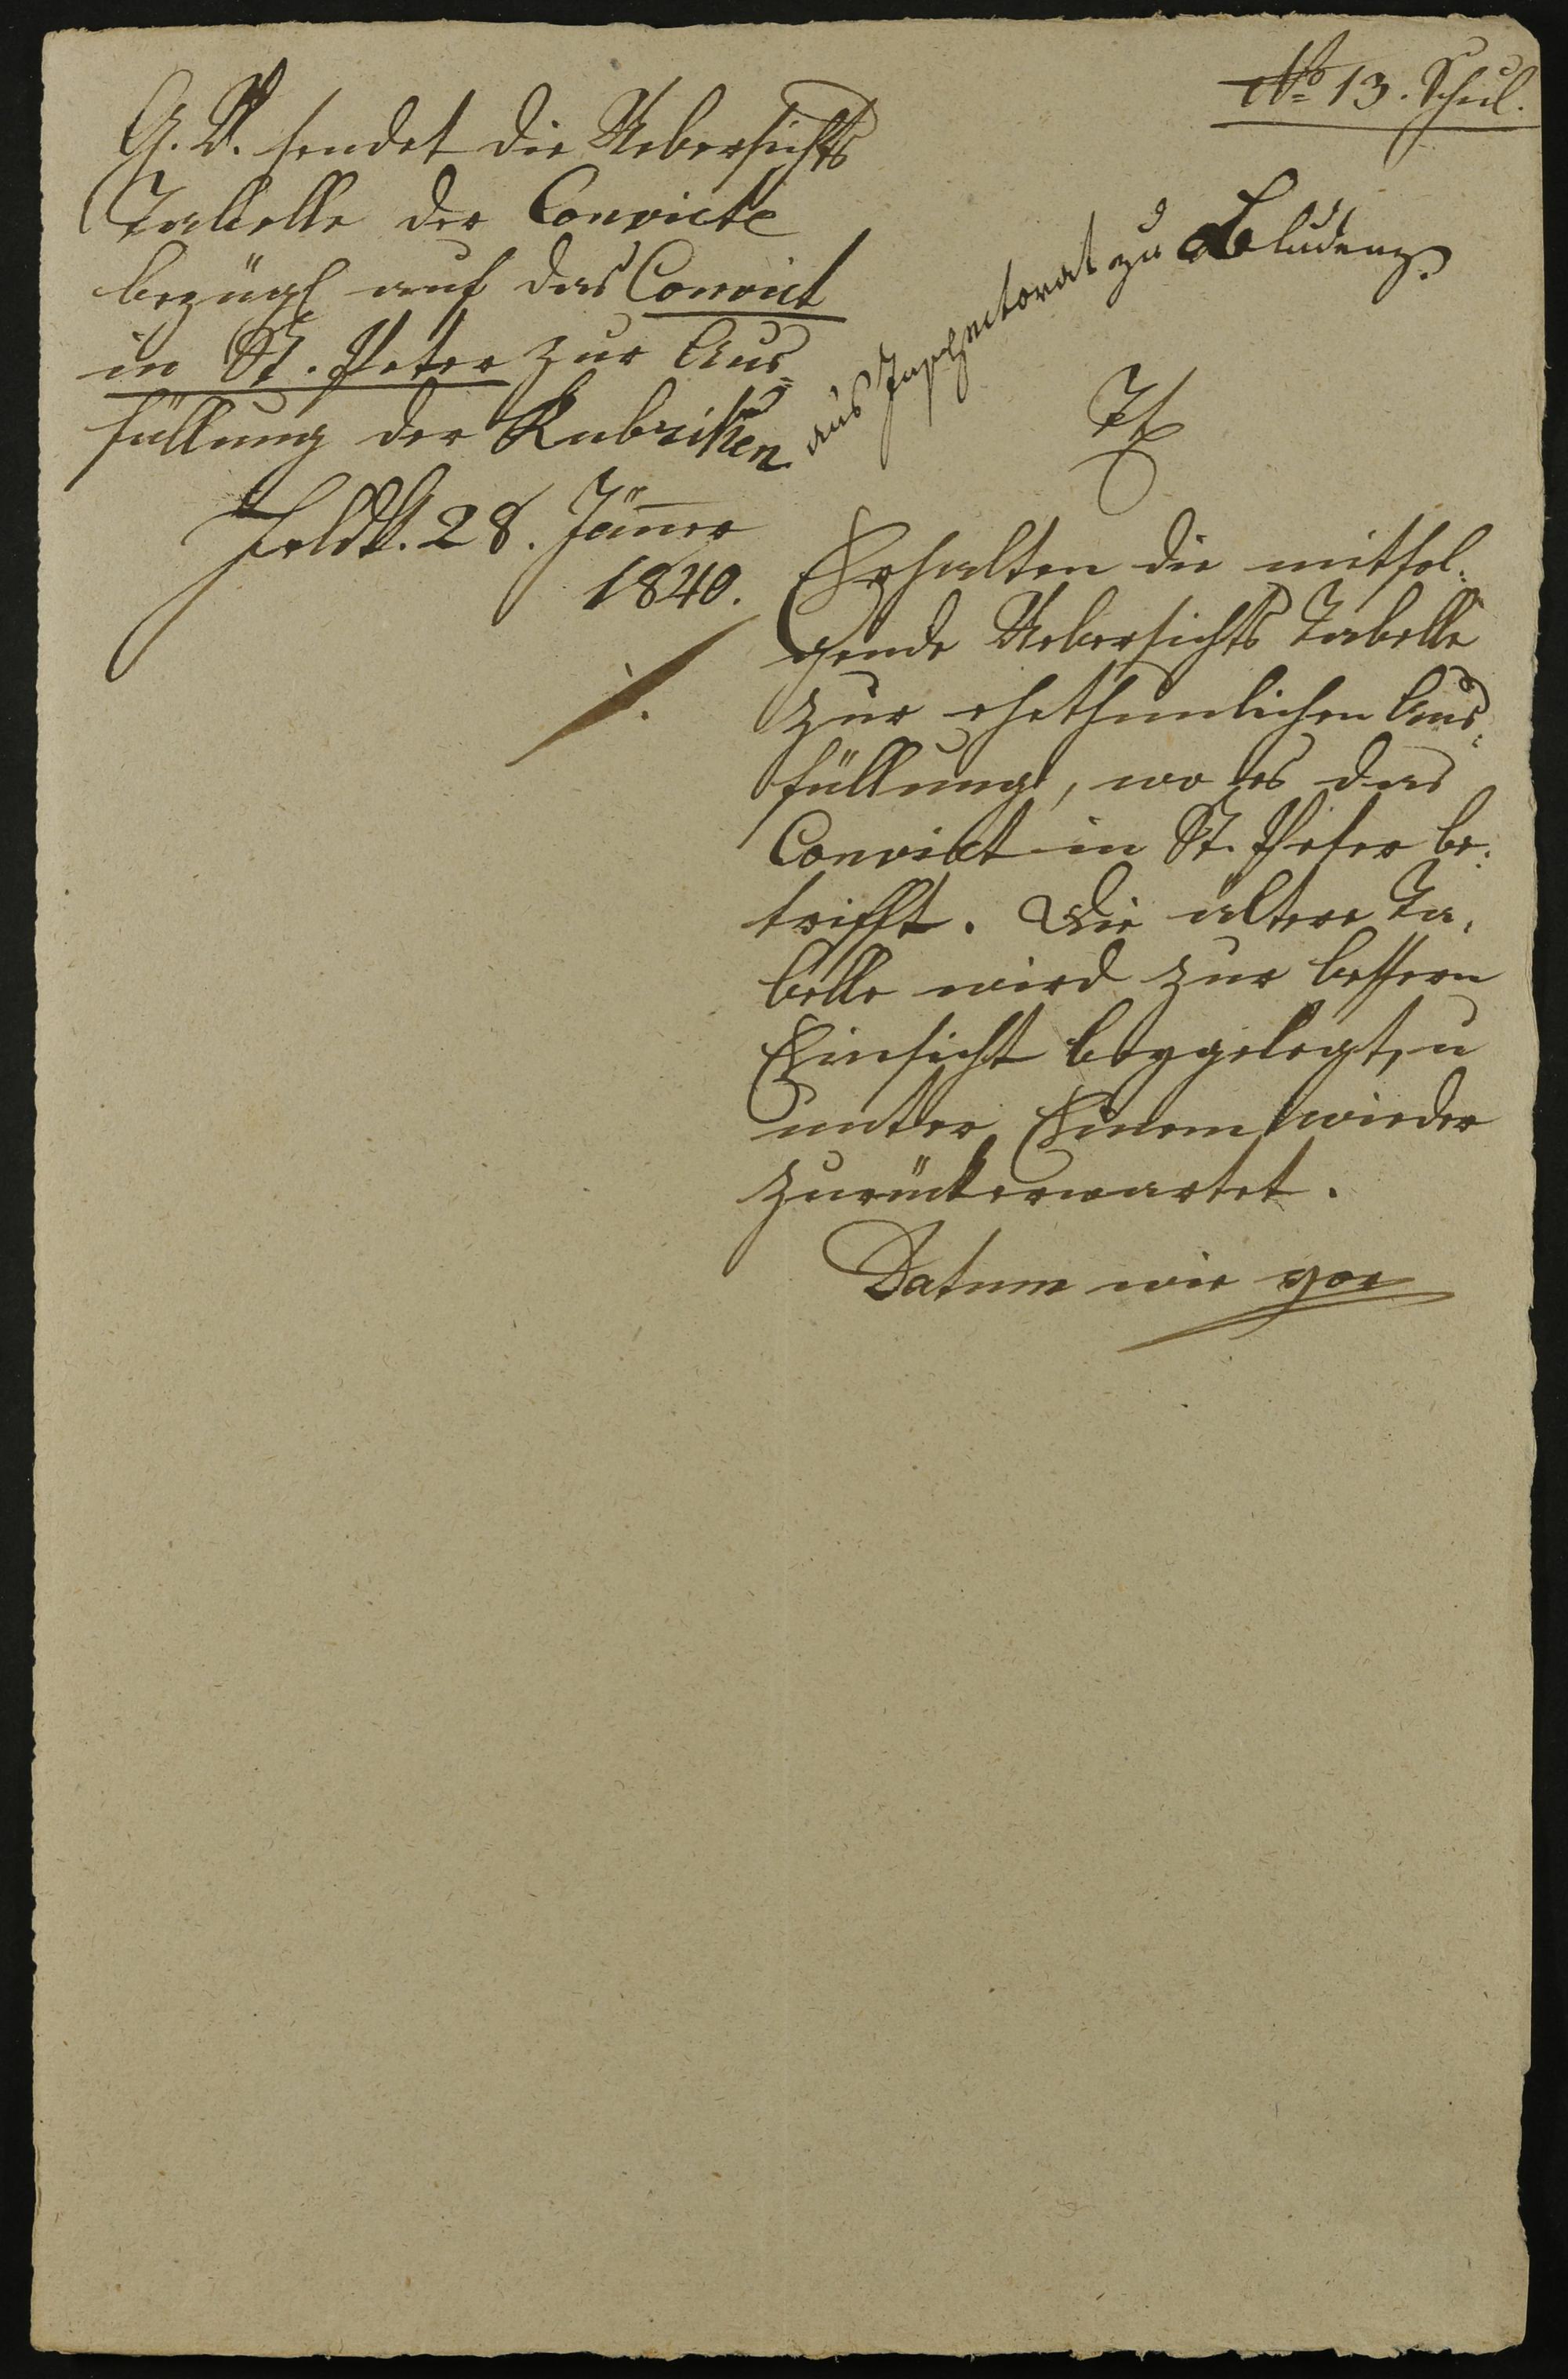 No 13. Schul.
G. V. sendet die Uebersichts
Tabelle der Convicte
bezügl auf das Convict
in St. Peter zur Aus=
füllung der Rubriken
ans Inspectorat zu Bludenz.
Feldk. 28. Jänner
1840.
Erhalten die mitfol=
gende Uebersichts Tabelle
zur ehethunlichen Aus=
füllung, wo es das
Convict in St. Peter be=
trifft. Die ältere Ta=
belle wird zur bessern
Einsicht beygelegt, u
unter Einem wieder
zurückerwartet.
Datum wie vor